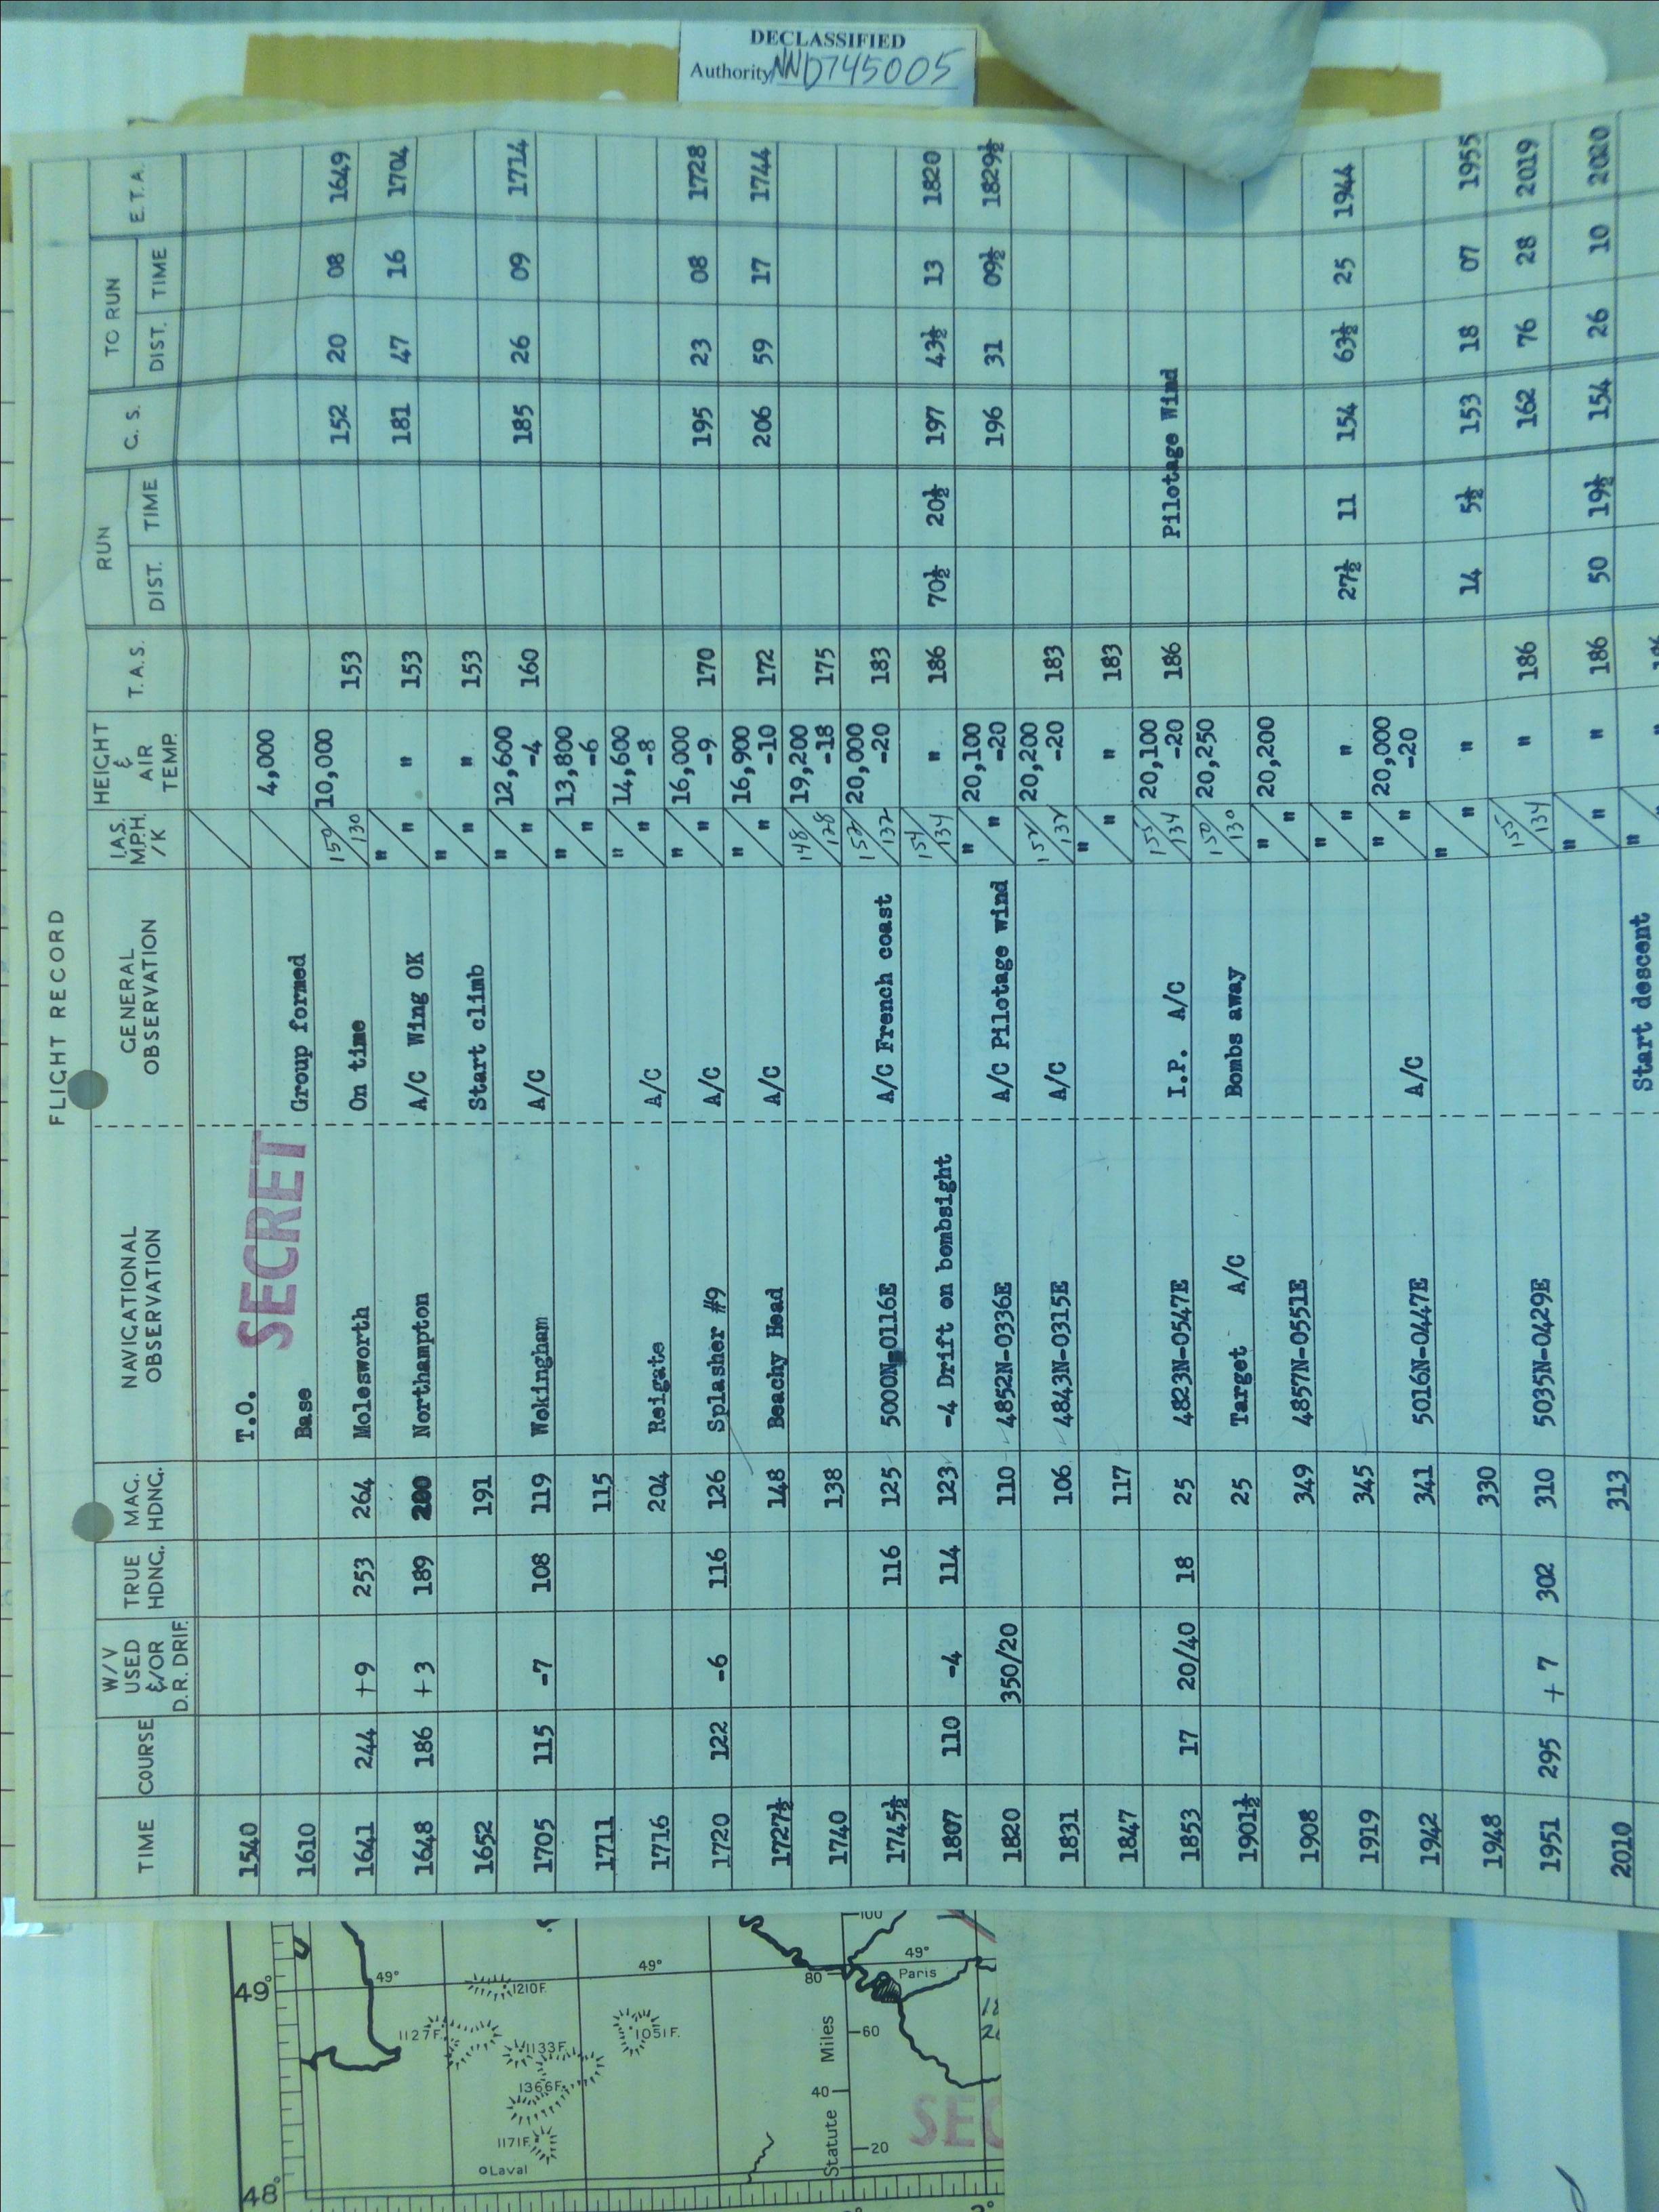 DECLASSIFIED
Authority NND745005
FLIGHT RECORD
TIME COURSE W/V USED &/OR D.R. DRIF. TRUE HDNG. MAG. HDNG. NAVIGATIONAL OBSERVATION GENERAL OBSERVATION I.A.S. M.P.H. /K HEIGHT & AIR TEMP. T.A.S. RUN DIST. TIME C. S. TO RUN DIST. TIME E.T.A.
1540 T.O.
SECRET
1610 Base Group formed 4,000
1641 244 +9 253 264 Molesworth On time 150/130 10,000 153 152 20 08 1649
1648 186 +3 189 200 Northampton A/C Wing OK "/" " 153 181 47 16 1704
1652 191 Start climb "/ " 153
1705 115 -7 108 119 Wokingham A/C "/" 12,600 -4 160 185 26 09 1714
1711 115 "/" 13,800 -6
1716 204 Reigate A/C "/" 14,600 -8
1720 122 -6 116 126 Splasher #9 A/C "/" 16,000 -9 170 195 23 08 1728
1727½ 148 Beachy Head A/C "/" 16,900 -10 172 206 59 17 1744
1740 138 148/128 19,200 -18 175
1745½ 116 125 5000N-0116E A/C French coast 152/132 20,000 -20 183
1807 110 -4 114 123 -4 Drift on bombsight 154/134 " 186 70½ 20½ 197 43½ 13 1820
1820 350/20 110 4852N-0336E A/C Pilotage wind "/" 20,100 -20 196 31 09½ 1829½
1831 106 4843N-0315E A/C 152/132 20,200 -20 183
1847 117 "/" " 183
1853 17 20/40 18 25 4823N-0547E I.P. A/C 155/134 20,100 -20 186 Pilotage Wind
1901½ 25 Target A/C Bombs away 150/130 20,250
1908 349 4857N-0551E "/" 20,200
1919 345 "/" " 27½ 11 154 63½ 25 1944
1942 341 5016N-0447E A/C "/" 20,000 -20
1948 330 "/" " 14 5½ 153 18 07 1955
1951 295 +7 302 310 5035N-0429E 155/134 " 186 162 76 28 2019
2010 313 "/" " 186 50 19½ 154 26 10 2020
Start descent " "
49°
49°
49°
49°
1210F.
1127F.
1133F.
1051F.
1366F.
1171F.
Laval
48°
Paris
100
80
60
40
20
Statute Miles